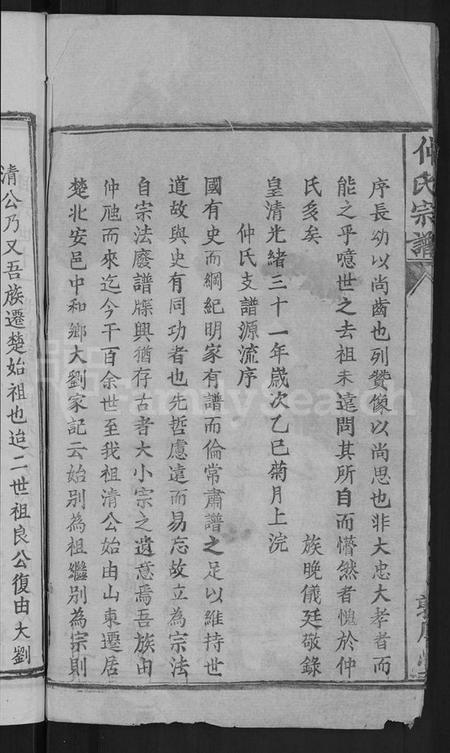 仲氏宗譜
序長幼以尚齒也列贊像以尚思也非大忠大孝者而
能之乎噫世之去祖未遠問其所自而懵然者愧於仲
氏多矣
皇清光緒三十一年歲次乙巳菊月上浣
族晚儀廷敬錄
仲氏支譜源流序
國有史而綱紀明家有譜而倫常肅譜之足以維持世
道故與史有同功者也先哲慮遠而易忘故立為宗法
自宗法廢譜牒興猶存古者大小宗之遺意焉吾族由
仲虺而來迄今千百余世至我祖清公始由山東遷居
楚北安邑中和鄉大劉家記云始別為祖繼別為宗則
清公乃又吾族遷楚始祖也迨二世祖良公復由大劉
FamilySearch